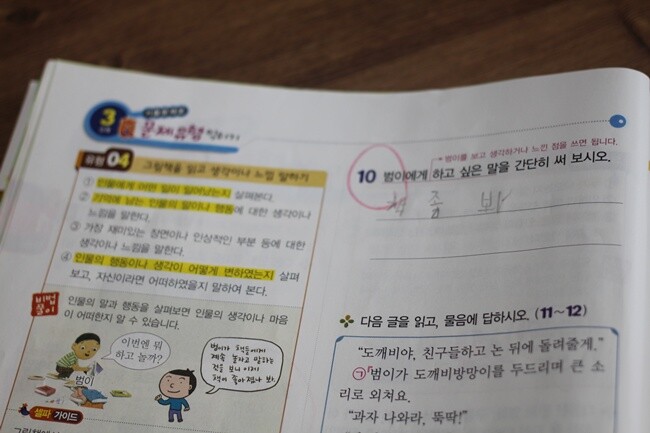 3
문제유형 익히기
유형 04
그림책을 읽고 생각이나 느낌 말하기
① 인물에게 어떤 일이 일어났는지 살펴본다.
② 기억에 남는 인물의 말이나 행동에 대한 생각이나
느낌을 말한다.
③ 가장 재미있는 장면이나 인상적인 부분 등에 대한
생각이나 느낌을 말한다.
④ 인물의 행동이나 생각이 어떻게 변하였는지 살펴
보고, 자신이라면 어떠하였을지 말하여 본다.
비법
풀이
인물의 말과 행동을 살펴보면 인물의 생각이나 마음
이 어떠한지 알 수 있습니다.
이번엔 뭐
하고 놀까?
범이
범이가 책들에게
계속 놀자고 말하는
것을 보니 이제
책이 좋아졌나 봐.
셀파 가이드
범이를 보고 생각하거나 느낀 점을 쓰면 됩니다.
10 범이에게 하고 싶은 말을 간단히 써 보시오.
책 좀 봐
다음 글을 읽고, 물음에 답하시오. (11~12)
“도깨비야, 친구들하고 논 뒤에 돌려줄게.”
㉠범이가 도깨비방망이를 두드리며 큰 소
리로 외쳐요.
“과자 나와라, 뚝딱!”